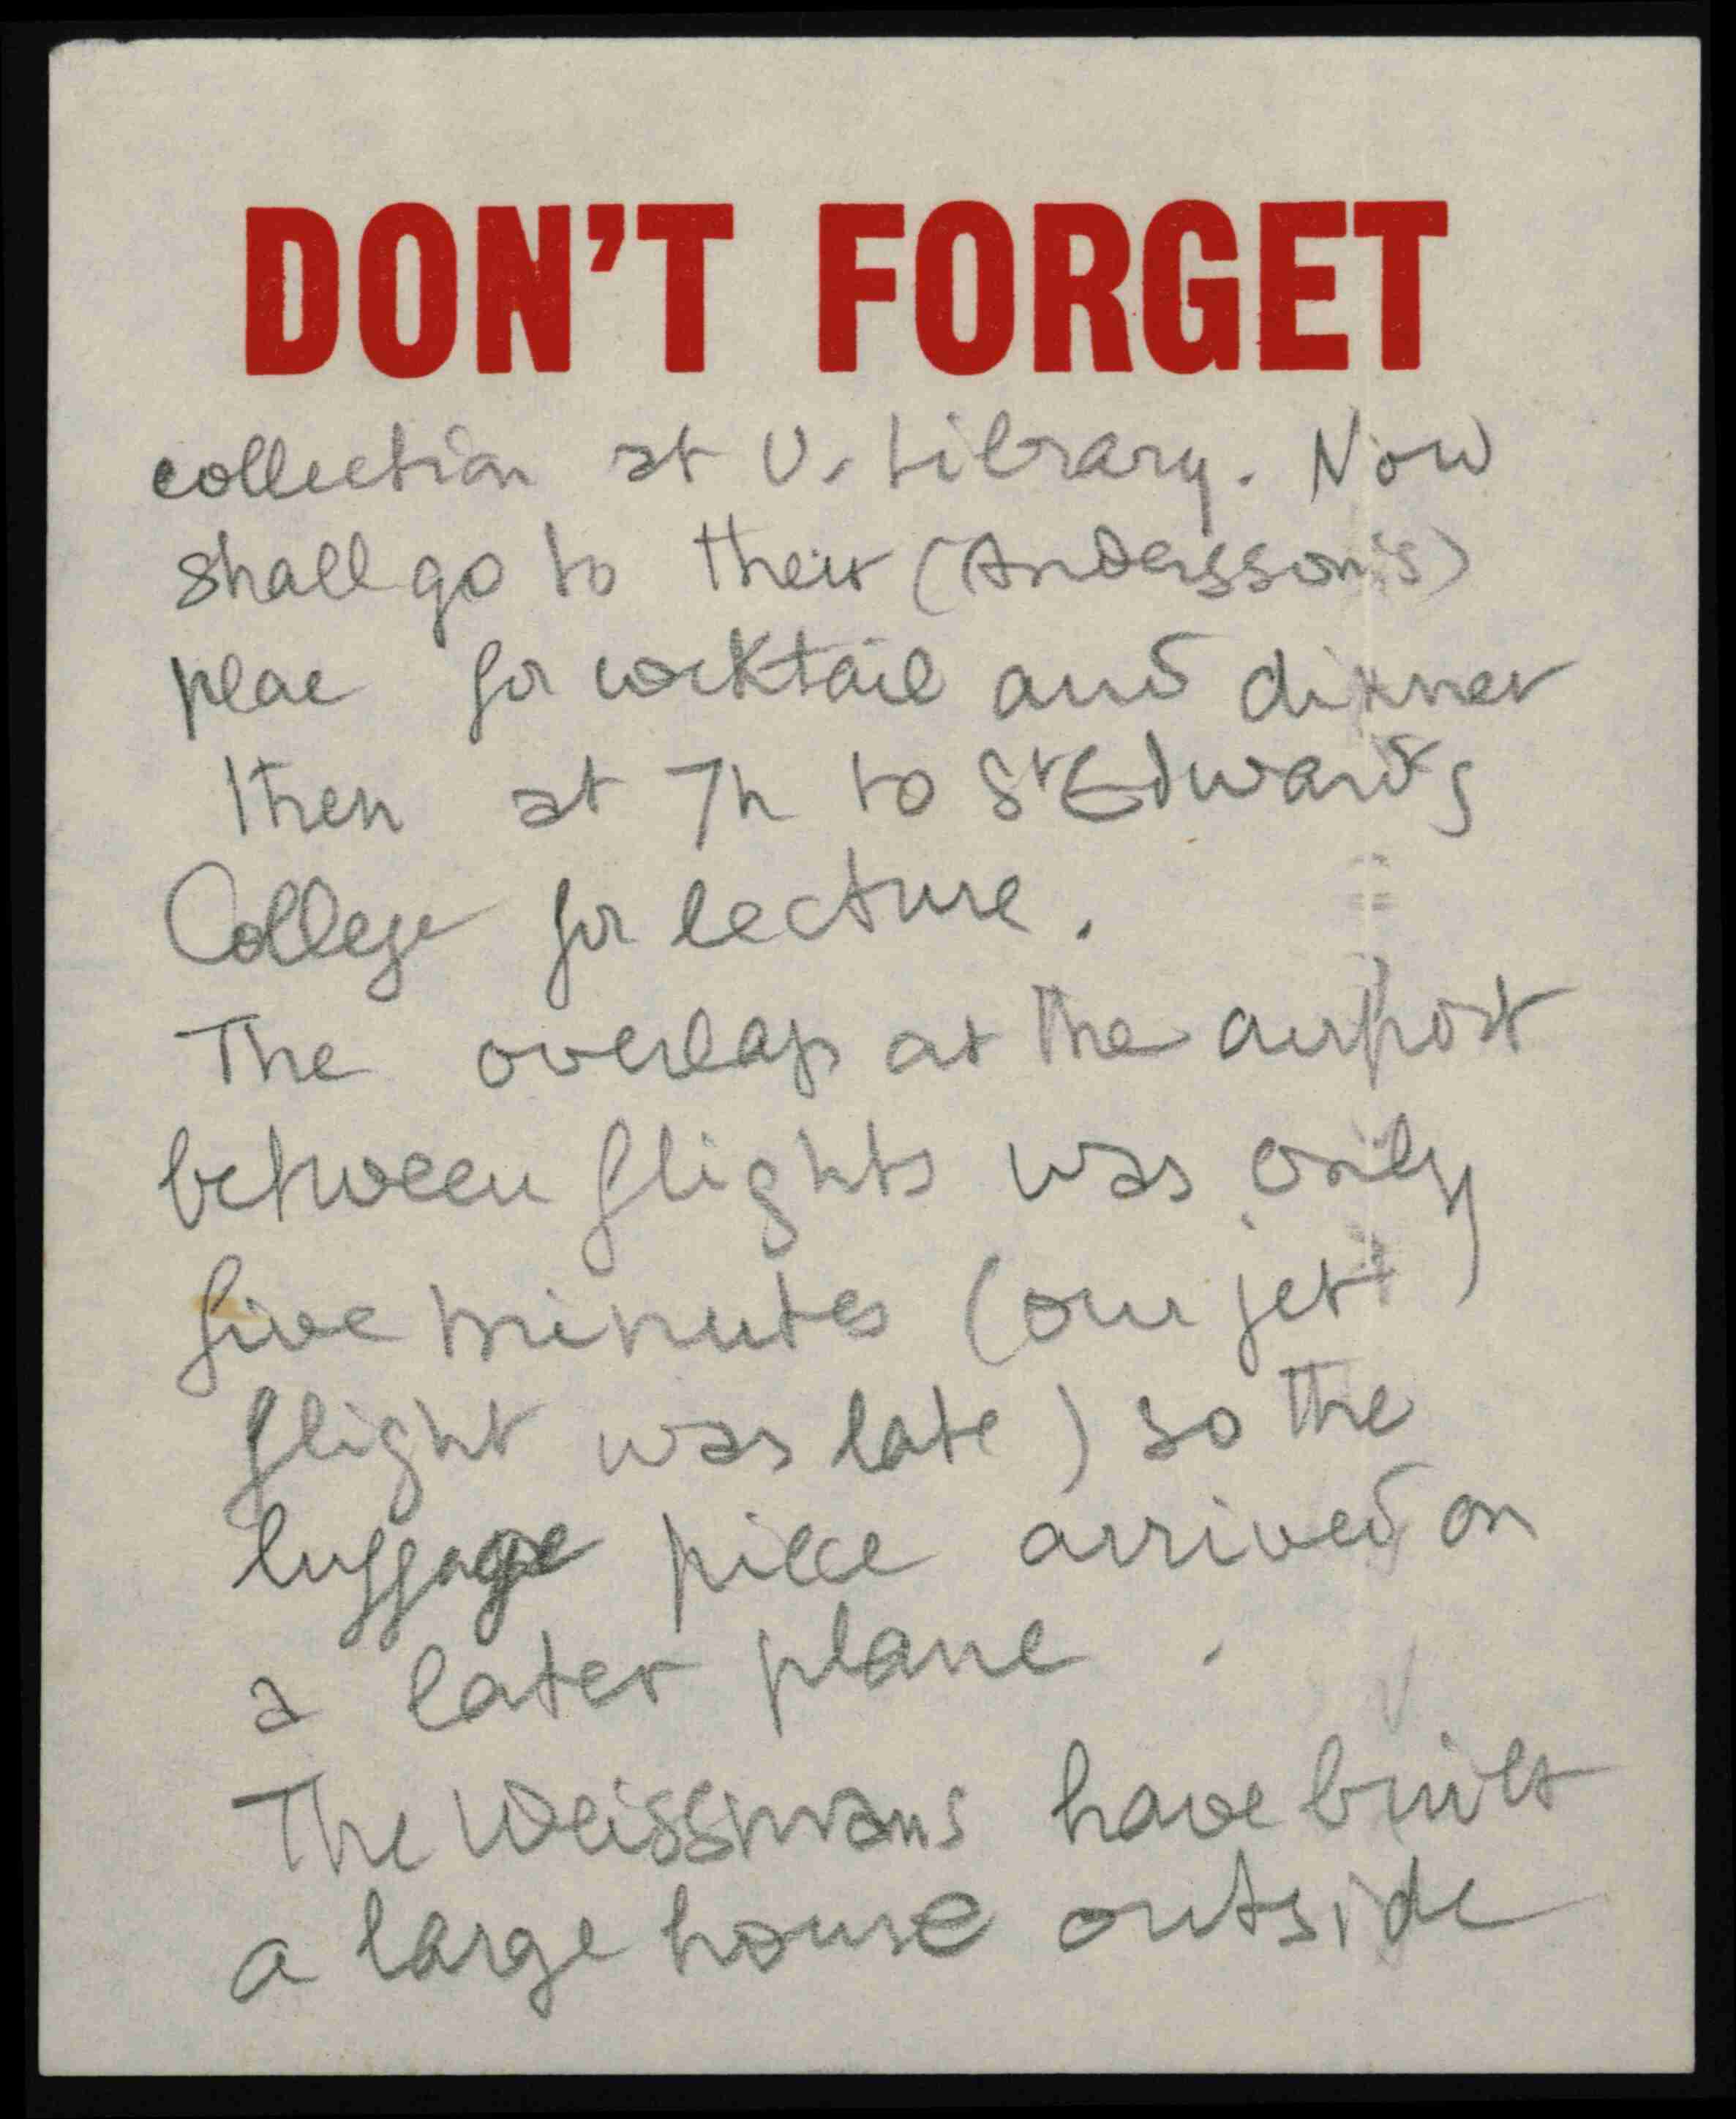 DON'T FORGET
collection at U. Library. Now
shall go to their (Andersson's)
place for cocktail and dinner
then at 7h to St Edwards
College for lecture.
The overlap at the airport
between flights was only
five minutes (our jet
flight was late) so the
luggage piece arrived on
a later plane.
The Weissmans have built
a large house outside